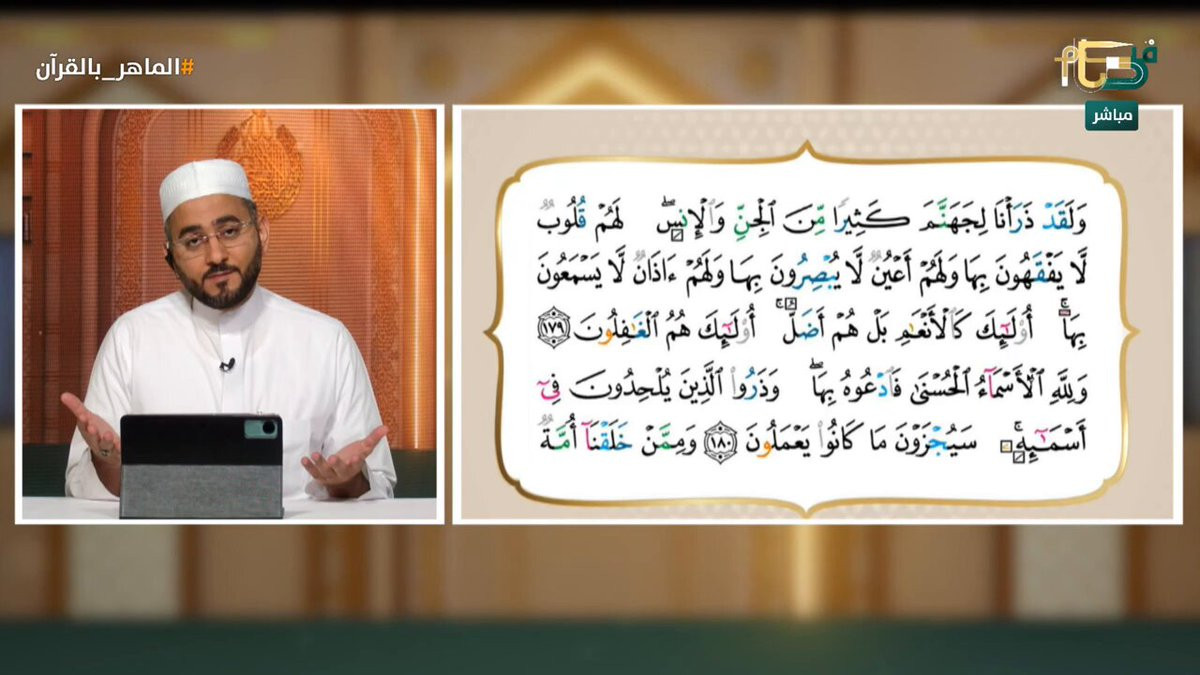 #الماهر_بالقرآن
مباشر
وَلَقَدْ ذَرَأْنَا لِجَهَنَّمَ كَثِيرًا مِّنَ ٱلْجِنِّ وَٱلْإِنسِۖ لَهُمْ قُلُوبٌ
لَّا يَفْقَهُونَ بِهَا وَلَهُمْ أَعْيُنٌ لَّا يُبْصِرُونَ بِهَا وَلَهُمْ ءَاذَانٌ لَّا يَسْمَعُونَ
بِهَآۚ أُو۟لَٰٓئِكَ كَٱلْأَنْعَٰمِ بَلْ هُمْ أَضَلُّۚ أُو۟لَٰٓئِكَ هُمُ ٱلْغَٰفِلُونَ ١٧٩
وَلِلَّهِ ٱلْأَسْمَآءُ ٱلْحُسْنَىٰ فَٱدْعُوهُ بِهَاۖ وَذَرُوا۟ ٱلَّذِينَ يُلْحِدُونَ فِىٓ
أَسْمَٰٓئِهِۦۚ سَيُجْزَوْنَ مَا كَانُوا۟ يَعْمَلُونَ ١٨٠ وَمِمَّنْ خَلَقْنَآ أُمَّةٌ